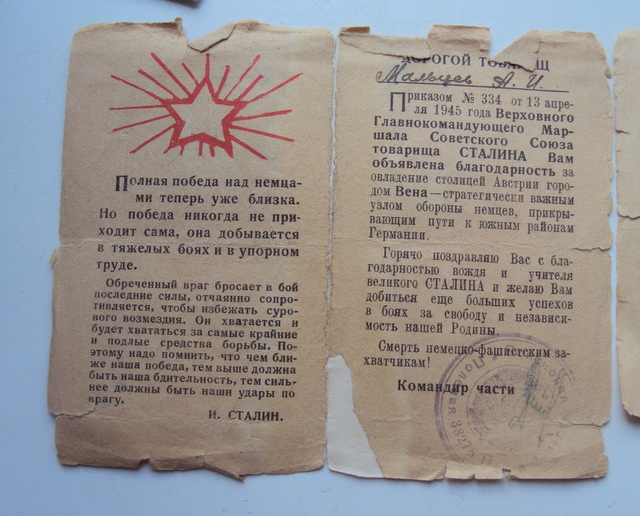 Полная победа над немца-
ми теперь уже близка.
Но победа никогда не при-
ходит сама, она добывается
в тяжелых боях и в упорном
труде.
Обреченный враг бросает в бой
последние силы, отчаянно сопро-
тивляется, чтобы избежать суро-
вого возмездия. Он хватается и
будет хвататься за самые крайние
и подлые средства борьбы. По-
этому надо помнить, что чем бли-
же наша победа, тем выше должна
быть наша бдительность, тем силь-
нее должны быть наши удары по
врагу.
И. СТАЛИН.
ДОРОГОЙ ТОВАРИЩ
Мальцев А. И.
Приказом № 334 от 13 апре-
ля 1945 года Верховного
Главнокомандующего Мар-
шала Советского Союза
товарища СТАЛИНА Вам
объявлена благодарность за
овладение столицей Австрии горо-
дом Вена—стратегически важным
узлом обороны немцев, прикры-
вающим пути к южным районам
Германии.
Горячо поздравляю Вас с бла-
годарностью вождя и учителя
великого СТАЛИНА и желаю Вам
добиться еще больших успехов
в боях за свободу и независи-
мость нашей Родины.
Смерть немецко-фашистским за-
хватчикам!
Командир части